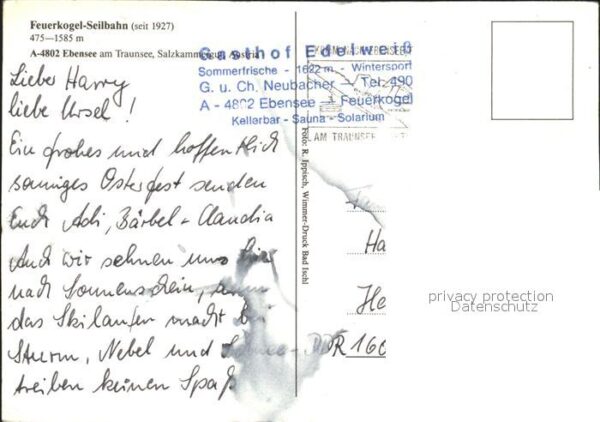 Feuerkogel-Seilbahn (seit 1927)
475—1585 m
A-4802 Ebensee am Traunsee, Salzkammergut, Austria
Gasthof Edelweiß
Sommerfrische - 1622 m - Wintersport
G. u. Ch. Neubacher Tel. 490
A - 4802 Ebensee - Feuerkogel
Kellerbar - Sauna - Solarium
AM TRAUNSEE
Lieber Harry
liebe Ursel!
Ein frohes und hoffentlich
sonniges Osterfest senden
Euch Adi, Bärbel - Claudia
Auch wir sehnen uns hier
nach Sonnenschein, denn
das Skilaufen macht bei
Sturm, Nebel und
treiben keinen Spaß
Foto: R. Ippisch, Wimmer-Druck Bad Ischl
Ha
He
DDR 160
privacy protection
Datenschutz